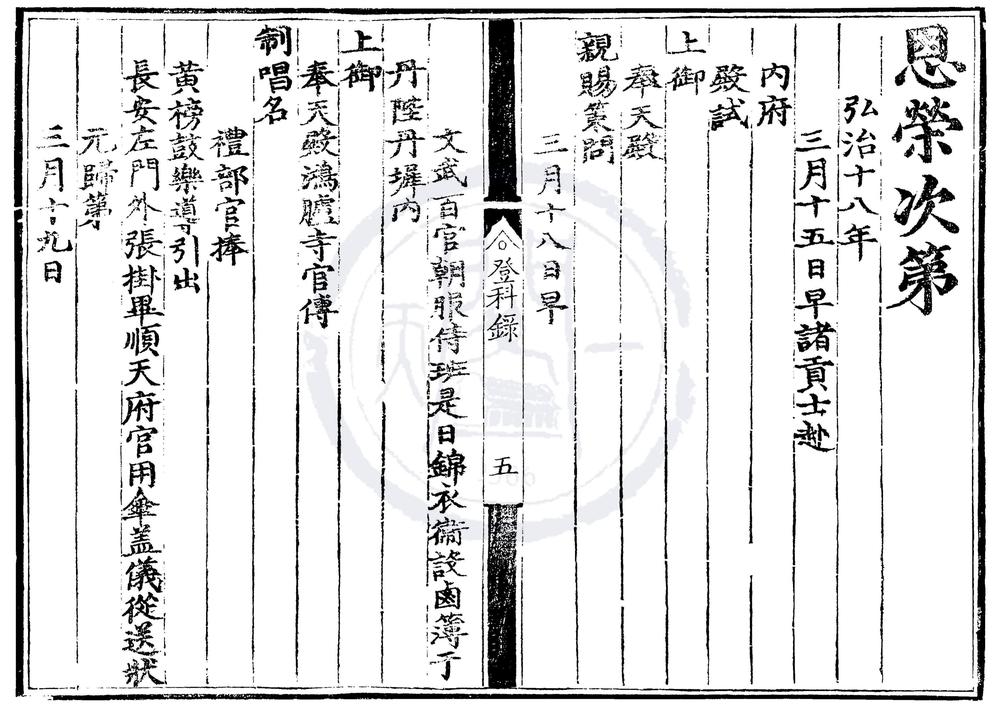 恩榮次第
弘治十八年
三月十五日早諸貢士赴
内府
殿試
上御
奉天殿
親賜策問
三月十八日早
登科錄
五
文武百官朝服侍班是日錦衣衛設鹵簿于
丹陛丹墀内
上御
奉天殿鴻臚寺官傳
制唱名
禮部官捧
黃榜鼓樂導引出
長安左門外張掛畢順天府官用傘盖儀從送狀
元歸第
三月十九日